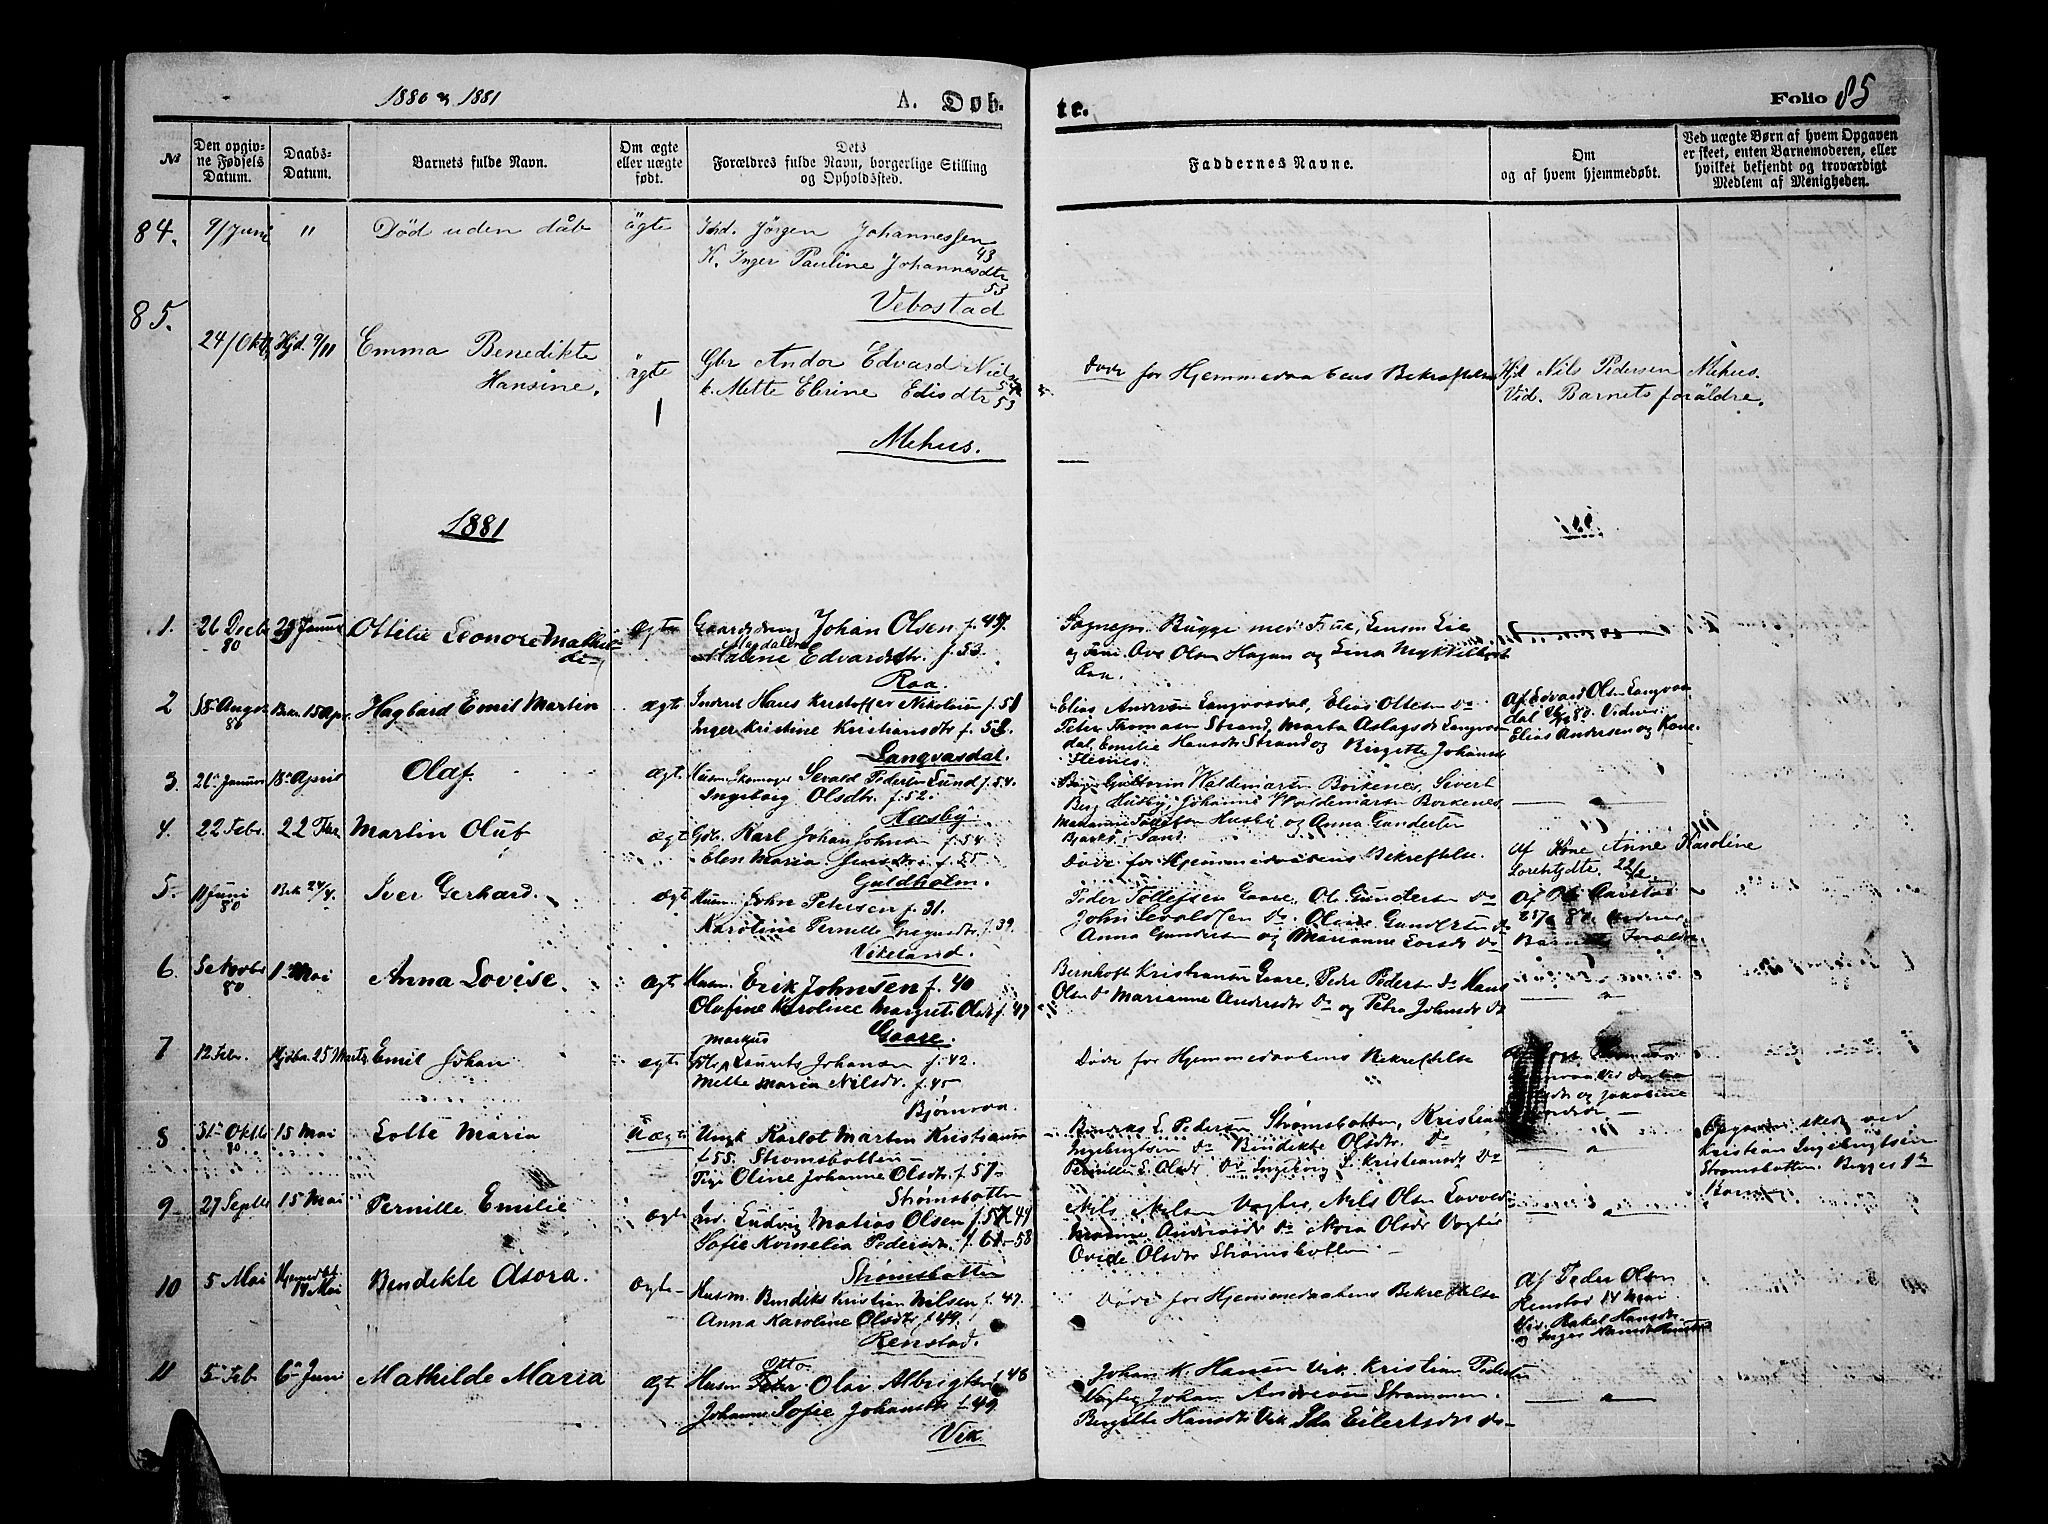 1880 & 1881
A. Døb-
te.
Folio 85
No
Den opgiv-
ne Fødsels
Datum.
Daabs-
Datum.
Barnets fulde Navn.
Om ægte
eller uægte
født.
Dets
Forældres fulde Navn, borgerlige Stilling
og Opholdssted.
Faddernes Navne.
Om
og af hvem hjemmedøbt.
Ved uægte Børn af hvem Opgaven
er skeet, enten Barnemoderen, eller
hvilket bekjendt og troværdigt
Medlem af Menigheden.
84. 9/Juni " Död uden dåb ägte Ind. Jörgen Johannessen 43
K. Inger Pauline Johannesdtr 53
Vebostad
85.
24/Oktb Hjd. 9/11 Emma Benedikte
Hansine.
ägte
1
Gbr Andor Edvard Niels 54
k. Mette Elerine Edisdtr 53
Mehus.
Döde før Hjemmedaabens Bekræftelse
Hjd Nils Pedersen Mehus.
Vid. Barnets foräldre.
1881
1. 26 Decbr 80 29 Januar Ottilie Leonore Mathil-
de
ægte Gaardydreng Johan Olsen f. 49.
Magdalena
Maline Edvardsdtr. f. 53.
Raa
Sognepr. Bugge med Frue, Lensm Lie
og Frue. Ove Olsen Hagan og Lina
Raa
2 18 August 80 Bekr. 15 Apr. Hagbard Emil Martin ægte Inderst Hans Kristoffer Nikolaisen f. 51
Inger Kristine Kristiansdtr f. 53.
Langvasdal.
Elias Andersen Langvasdal, Elias Ottesen Do
Peter Thomasen Strand, Marta Aslagsdtr Langvas
dal, Emilie Hansdtr Strand og Birgitte Johans
Stenes.
Af Edvard Olsen Langvas
dal 80. Vidner
Elias Andersen og Kone
3. 26 Januar 18 April Olaf. ægte Husm Skomager Sevald Pedersen Lund f. 54.
Ingeborg Olsdtr. f. 52.
Husby
Guttorm Waldemarsen Borkenes, Sivert
Berg Husby, Johannes Waldemarsen Borkenes
Marianne Tollefsen Husby og Anna Gundersen
Sand
4. 22 Febr. 22 Febr Martin Oluf ægte Gbr. Karl Johan Johnsen f. 54
Elen Maria Jensdtr f. 55
Guldholm.
Døde før Hjemmedaabens Bekræftelse.
af Kone Anne Karoline
22/2
5. 11 Juni 80 Bek 24/4. Iver Gerhard. ægte Husm John Petersen f. 31.
Karoline Pernille f. 39
Vikeland.
Peder Tollefsen Gaare, Ole Gundersen Do
John Sevaldsen Do. Oline Gundersen Do
Anna Gundersen og Marianne Larsdtr Do
Af Ole
80. Vidner
Barnets Forældre
6. 5 Novbr 80 1 Mai Anna Lovise. ægte Husm. Erik Johnsen f. 40
Olafine Karoline Margrete Olsdtr f. 47
Gaare.
Bernhoft Kristiansen Gaare, Peder Pedersen Do Hans
Olsen Do Marianne Andersdtr Do og Petra Johnsdtr Do
7 12 Febr. Hjdbn. 25 Marts Emil Johan ægte Markus
Gbr Laurits Johansen f. 42.
Mette Maria Nilsdtr. f. 45
Bjørnraa.
Døde før Hjemmedaabens Bekræftelse
og Jakobine
8 31 Oktbr 80 15 Mai Lotte Maria Uægte Ungk Karlot Martin Kristiansen
f. 55. Strømsbotten
Pige Oline Johanne Olsdtr f. 57
Strømsbotten
Bendiks E. Pedersen Strømsbotten, Kristian
Ingebrigtsen Do Bendikte Olsdtr. Do
Pernille E. Olsdtr Do Ingeborg L. Kristiansdtr Do
Opgaven skede ved
Kristian Ingebrigtsen
Strømsbotten. Begges 1ste
Barn
9 27 Septbr 15 Mai Pernille Emilie ægte In. Ludvig Matias Olsen f. 57 44
Sofie Kornelia Pedersdtr. f. 61-58
Strømsbotten
Nils Nilsen Vogter, Nils Olsen
Marianne Andreasdtr Do Nora Olsdtr Vogter
Ovide Olsdtr Strømsbotten
10 5 Mai Hjemmedbt. 14 Mai Bendikte Asora. ægte Husm. Bendiks Kristian Nilsen f. 47.
Anna Karoline Olsdtr f. 44.
Renstad.
Døde før Hjemmedaabens Bekræftelse
Af Peder Olsen
Renstad 14 Mai
Vid. Rakel Hansdtr
og Inger
11 5 Feb 6 Juni Mathilde Maria ægt Otto
Husm Peter Olai Albrigtsen f. 48
Johanne Sofie Johansdtr f. 49.
Vik
Johan K. Hansen Vik, Kristian Pedersen
Johan Andreasen Strømmen.
Birgitte Hansdtr Vik Ida Eilertsdtr do